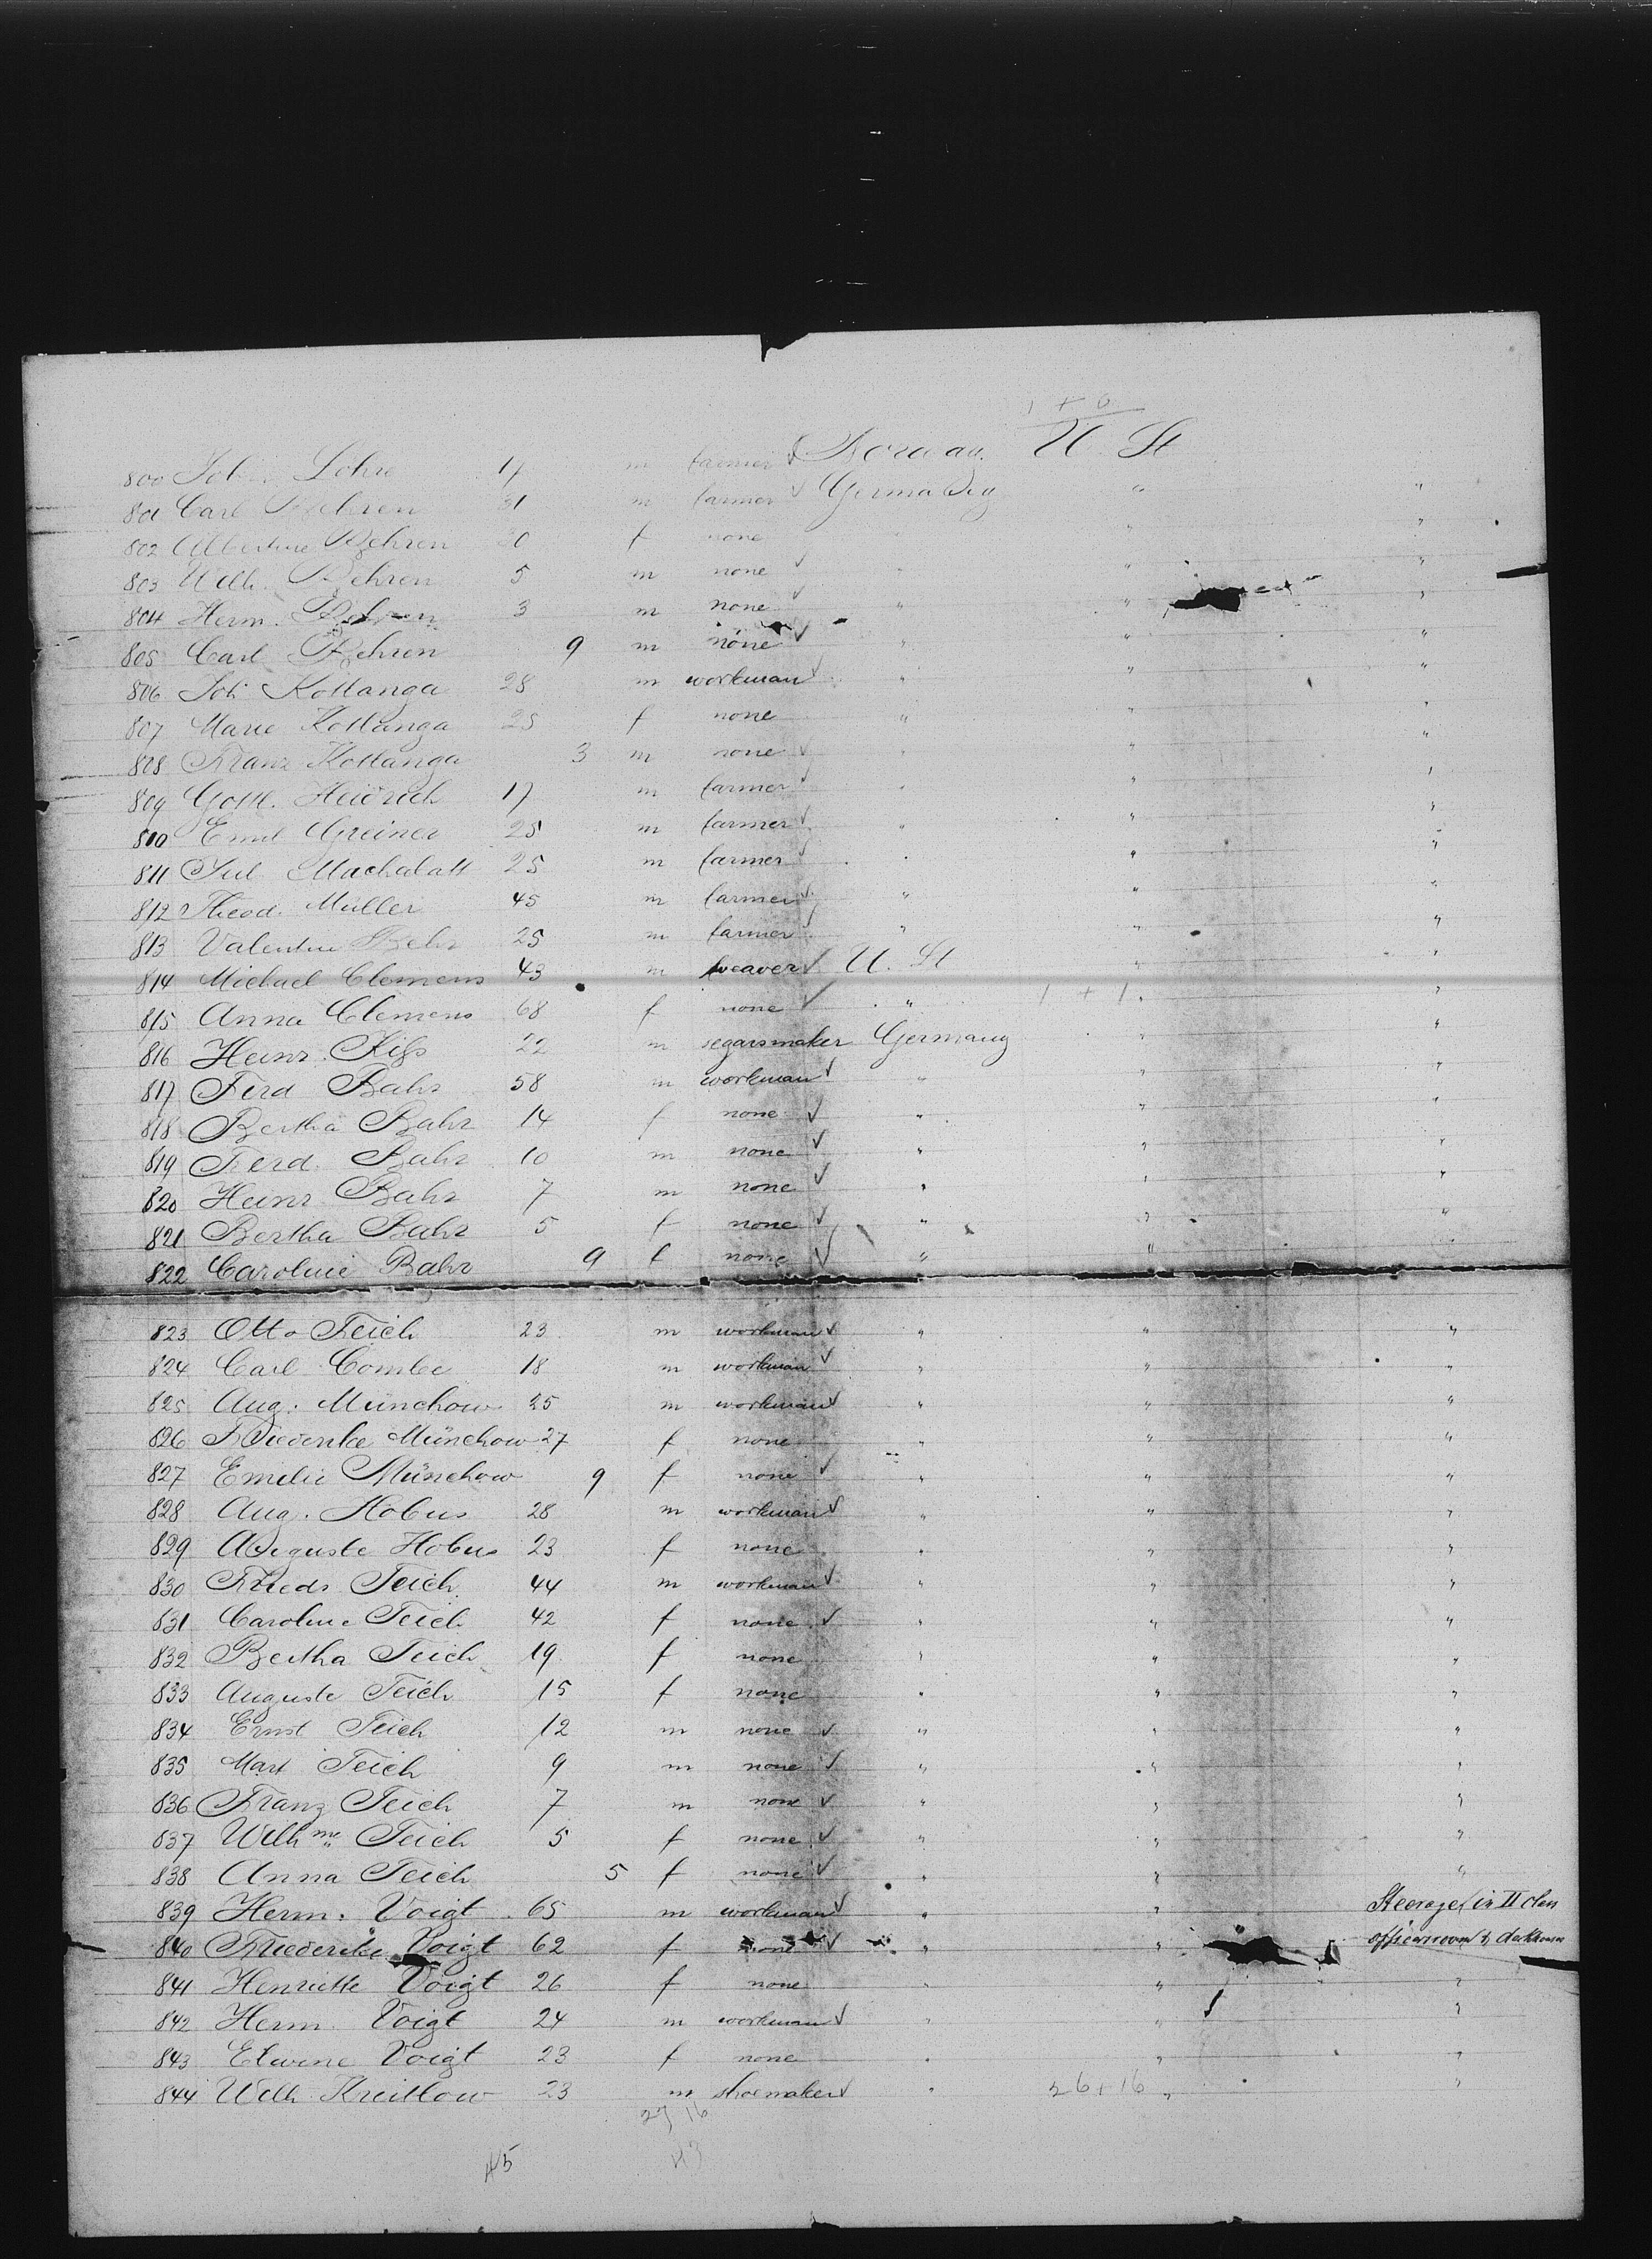 1 + 0
800 Joh. Löhre 17 m farmer ✓ Norway U. St
801 Carl Rehren 31 m farmer ✓ Germany " "
802 Albertine Rehren 20 f none " " "
803 Wilh. Rehren 5 m none ✓ " " "
804 Herm. Rehren 3 m none ✓ " " "
805 Carl Rehren 9 m none ✓ " " "
806 Joh Kottanga 28 m workman ✓ " " "
807 Marie Kottanga 25 f none " " "
808 Franz Kottanga 3 m none ✓ " " "
809 Gottl. Heidrich 17 m farmer ✓ " " "
810 Emil Greiner 25 m farmer ✓ " " "
811 Jul Machalatt 25 m farmer ✓ " " "
812 Theod. Müller 45 m farmer ✓ " " "
813 Valentin Behr 25 m farmer ✓ " " "
814 Michael Clemens 43 m weaver ✓ U. St " "
815 Anna Clemens 68 f none ✓ " 1 + 1 " "
816 Heinr. Kiss 22 m segarsmaker Germany " "
817 Ferd Bahr 58 m workman ✓ " " "
818 Bertha Bahr 14 f none ✓ " " "
819 Ferd. Bahr 10 m none ✓ " " "
820 Heinr Bahr 7 m none ✓ " " "
821 Bertha Bahr 5 f none ✓ " " "
822 Caroline Bahr 9 f none ✓ " " "
823 Otto Teich 23 m workman ✓ " " "
824 Carl Combe 18 m workman ✓ " " "
825 Aug. Münchow 25 m workman ✓ " " "
826 Friederike Münchow 27 f none " " "
827 Emilie Münchow 9 f none ✓ " " "
828 Aug. Hobus 28 m workman ✓ " " "
829 Auguste Hobus 23 f none " " "
830 Friedr Teich 44 m workman ✓ " " "
831 Caroline Teich 42 f none ✓ " " "
832 Bertha Teich 19 f none " " "
833 Auguste Teich 15 f none " " "
834 Ernst Teich 12 m none ✓ " " "
835 Mart Teich 9 m none ✓ " " "
836 Franz Teich 7 m none ✓ " " "
837 Wilhme Teich 5 f none ✓ " " "
838 Anna Teich 5 f none ✓ " " "
839 Herm. Voigt 65 m workman ✓ " " Steerage in II class
840 Friederike Voigt 62 f none ✓ " "
841 Henriette Voigt 26 f none " " "
842 Herm Voigt 24 m workman ✓ " " "
843 Elwine Voigt 23 f none " " "
844 Wilh Kreitlow 23 m shoemaker ✓ " 26 + 16 " "
27 16
45 43